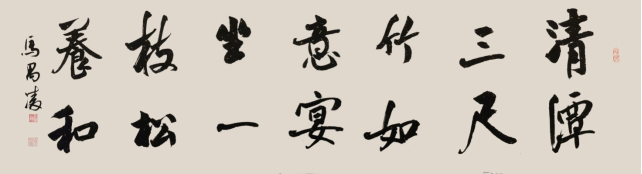 清潭
三尺
竹如
意宴
坐一
枝松
養和
馬景濤